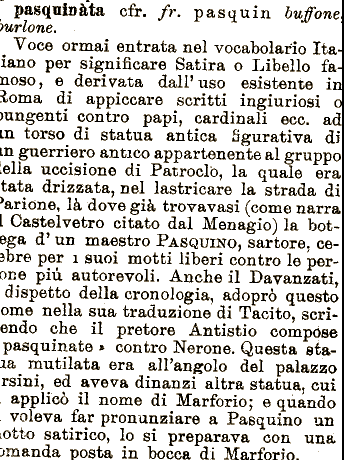 pasquinàta cfr. fr. pasquin buffone,
burlone.
Voce ormai entrata nel vocabolario Ita-
iano per significare Satira o Libello fa-
moso, e derivata dall'uso esistente in
Roma di appiccare scritti ingiuriosi o
pungenti contro papi, cardinali ecc. ad
un torso di statua antica figurativa di
un guerriero antico appartenente al gruppo
della uccisione di Patroclo, la quale era
stata drizzata, nel lastricare la strada di
Parione, là dove già trovavasi (come narra
l Castelvetro citato dal Menagio) la bot-
ega d'un maestro PASQUINO, sartore, ce-
ebre per i suoi motti liberi contro le per-
one più autorevoli. Anche il Davanzati,
dispetto della cronologia, adoprò questo
ome nella sua traduzione di Tacito, scri-
endo che il pretore Antistio compose
pasquinate » contro Nerone. Questa sta-
ua mutilata era all'angolo del palazzo
rsini, ed aveva dinanzi altra statua, cui
applicò il nome di Marforio; e quando
voleva far pronunziare a Pasquino un
otto satirico, lo si preparava con una
omanda posta in bocca di Marforio.